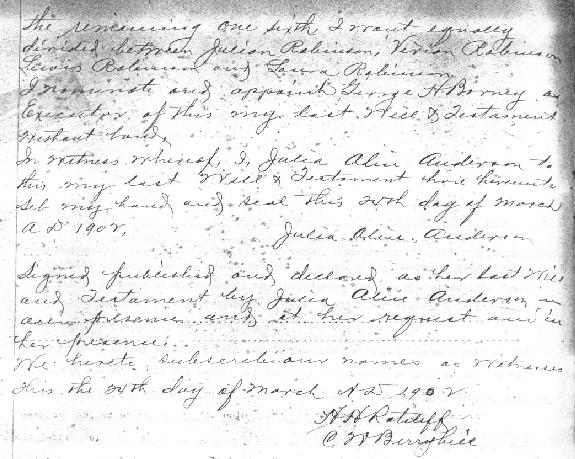 the remaining one sixth I want equally
divided between Julian Robinson, Vivian Robinson
Lewis Robinson and Laura Robinson
I nominate and appoint George H Borney as
Executor of this my last Will & Testament
without bond,
In Witness whereof, I, Julia Alice Anderson to
this my last Will & Testament have hereunto
set my hand and seal this 24th day of March
A D 1902,
Julia Alice Anderson
Signed published and declared as her last Will
and Testament by Julia Alice Anderson in
our presence and at her request and in
her presence.
We hereto subscribe our names as Witnesses
this the 24th day of March A D 1902
H H Ratcliff
C W Berryhill